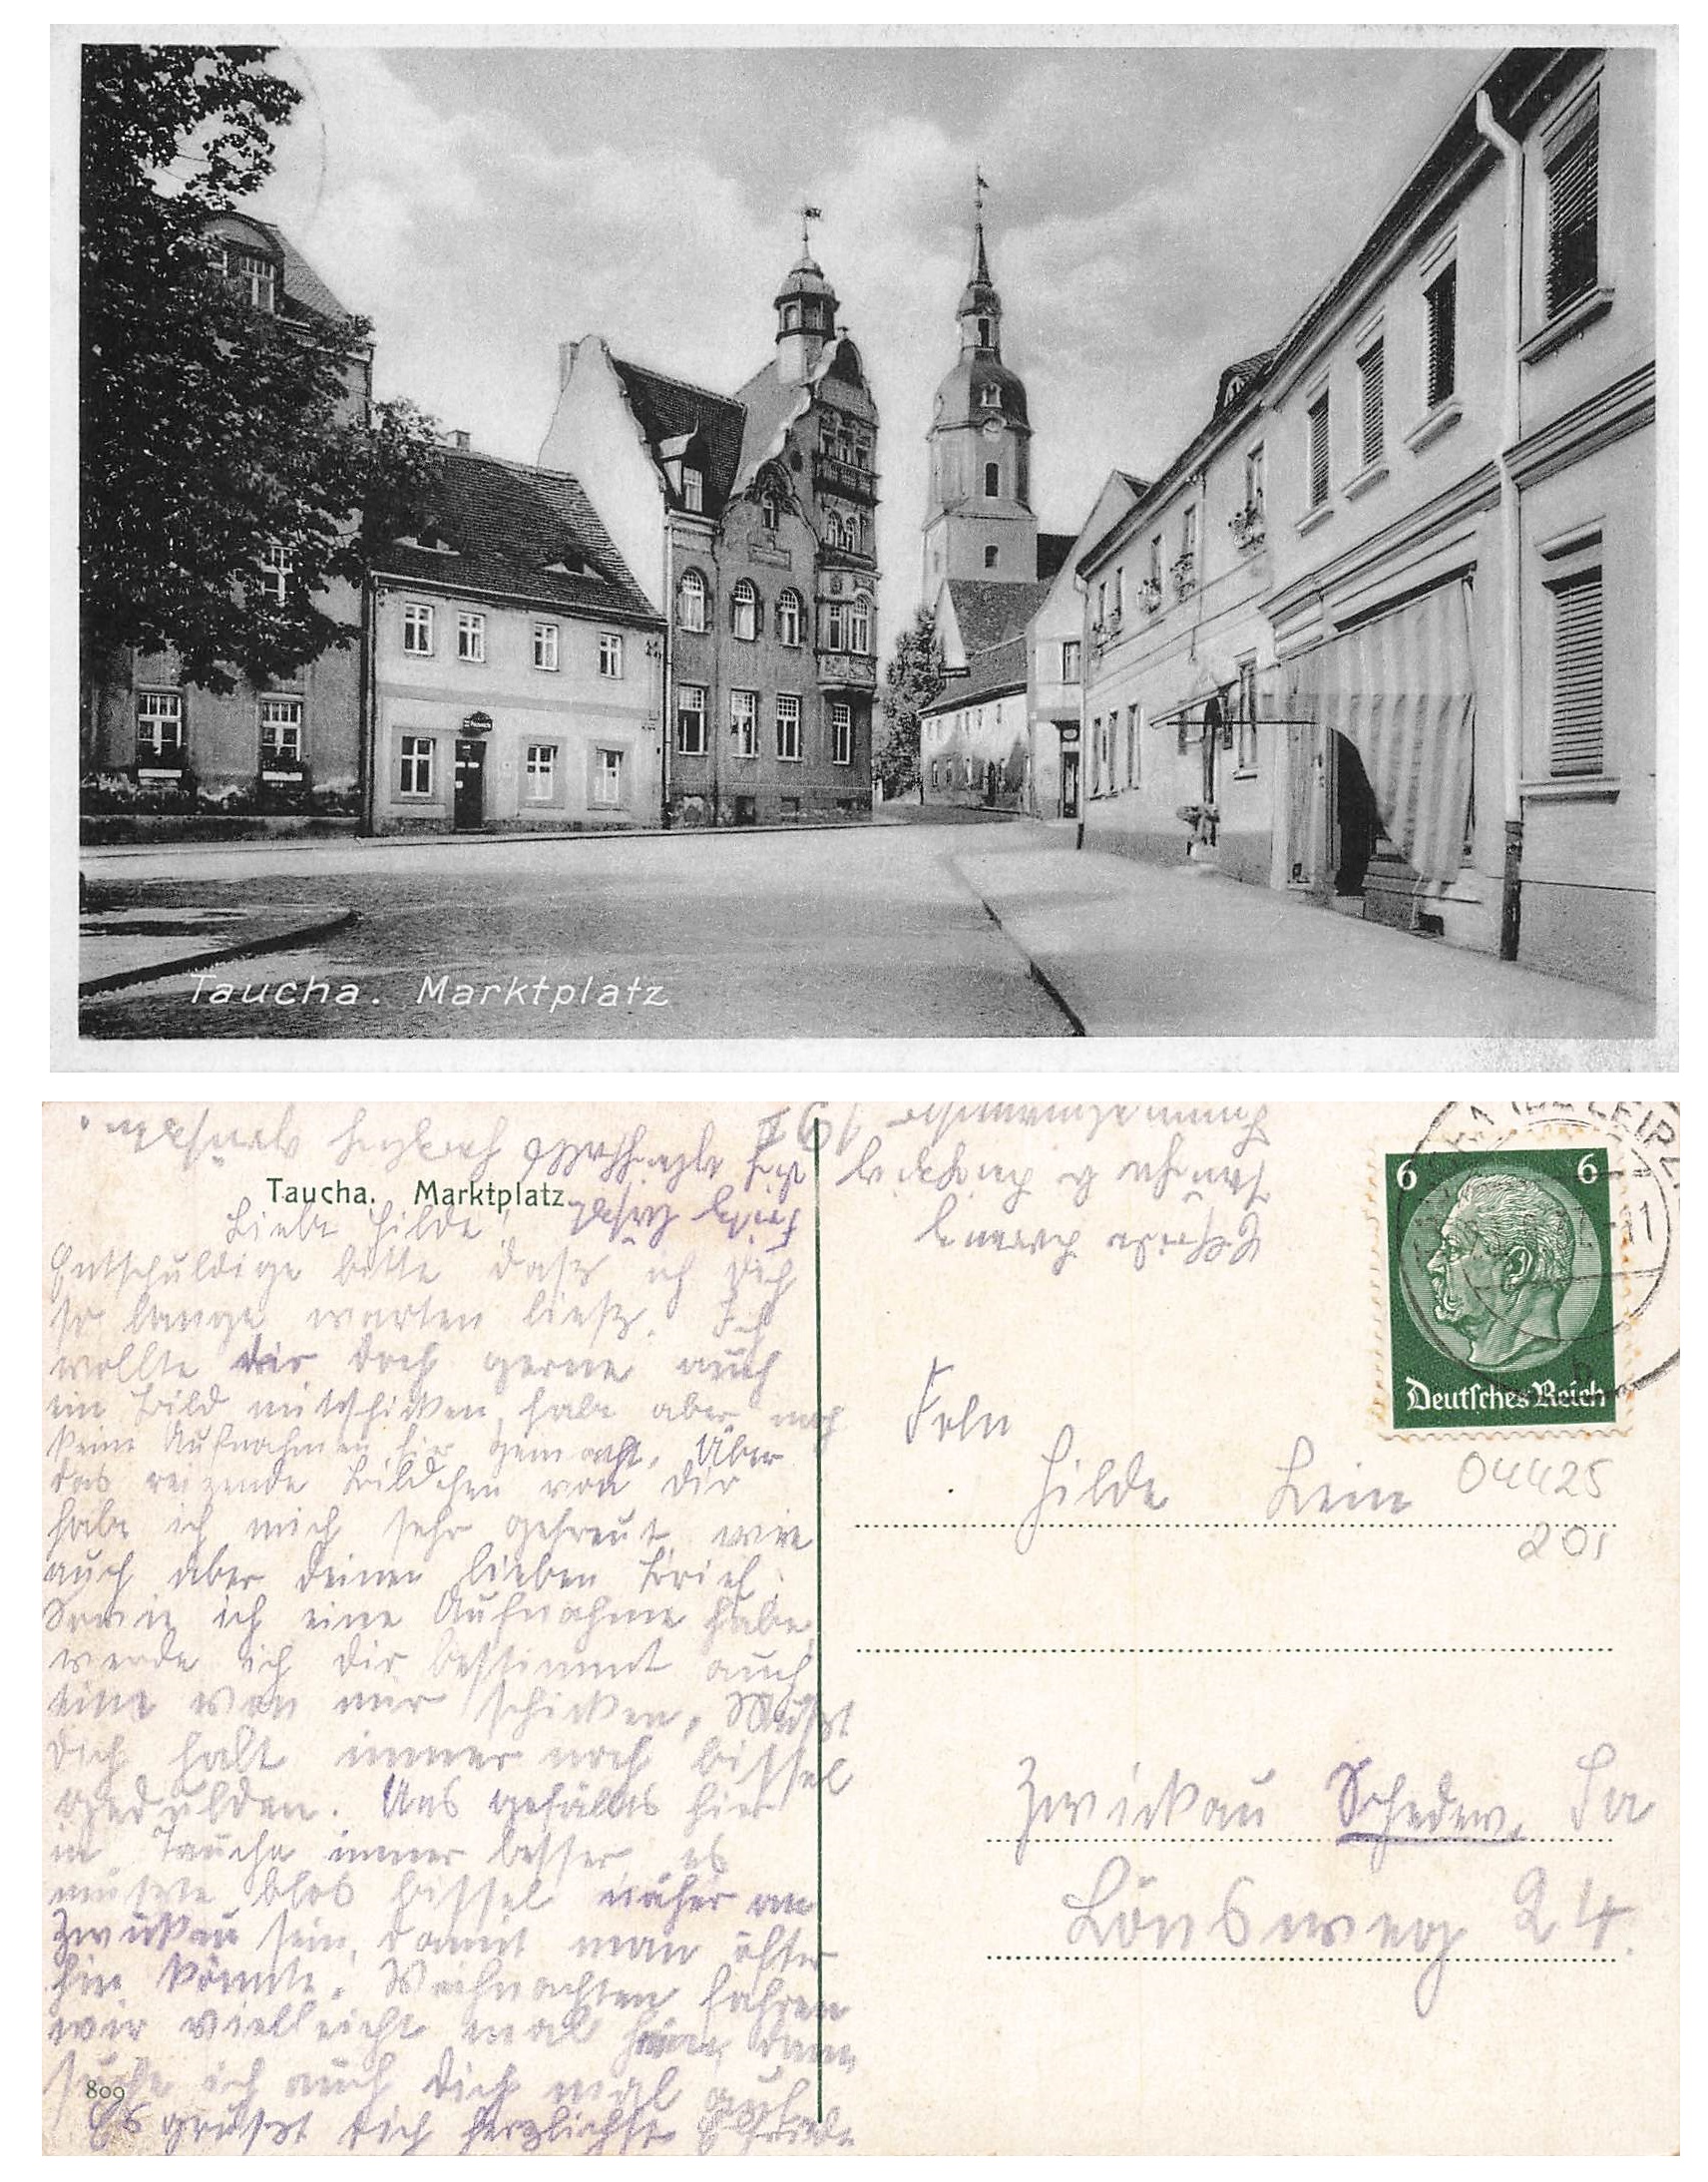 Taucha. Marktplatz
Taucha. Marktplatz
Liebe Hilde!
Entschuldige bitte daß ich Dich
so lange warten ließ. Ich
wollte dir doch gerne auch
ein Bild mitschicken, habe aber noch
keine Aufnahmen hier gemacht. Über
das reizende Bildchen von Dir
habe ich mich sehr gefreut, wie
auch über Deinen lieben Brief.
Sowie ich eine Aufnahme habe,
werde ich Dir bestimmt auch
eine von mir schicken. Mußt
Dich halt immer noch bissel
gedulden. Uns gefällts hier
in Taucha immer besser, es
müßte blos bissel näher an
Zwickau sein, damit man öfter
hin könnte. Weihnachten fahren
wir vielleicht mal hin, dann
suche ich auch Dich mal auf.
Es grüßt Dich herzlichst Elfriede
809
6 6
Deutsches Reich
11
b
Frln
Hilde Lein
04425
201
Zwickau Schedew. Sa
Lönsweg 24.